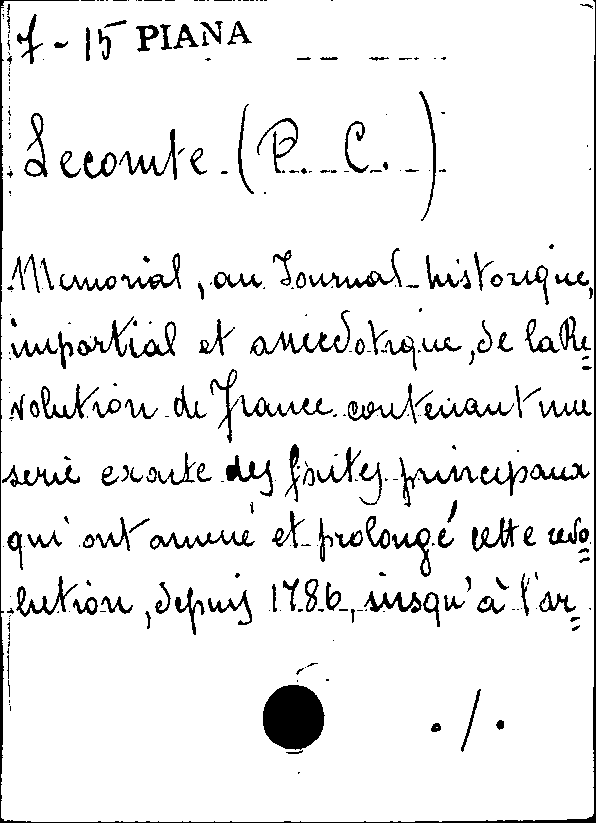 7-15 PIANA
Lecomte (P. C.)
Memorial, au Journal historique,
impartial et anecdotique, de la Re=
volution de France contenant une
serie exacte des faits principaux
qui ont amené et prolongé cette revo=
lution, depuis 1786, jusqu'à l'ar=
./.